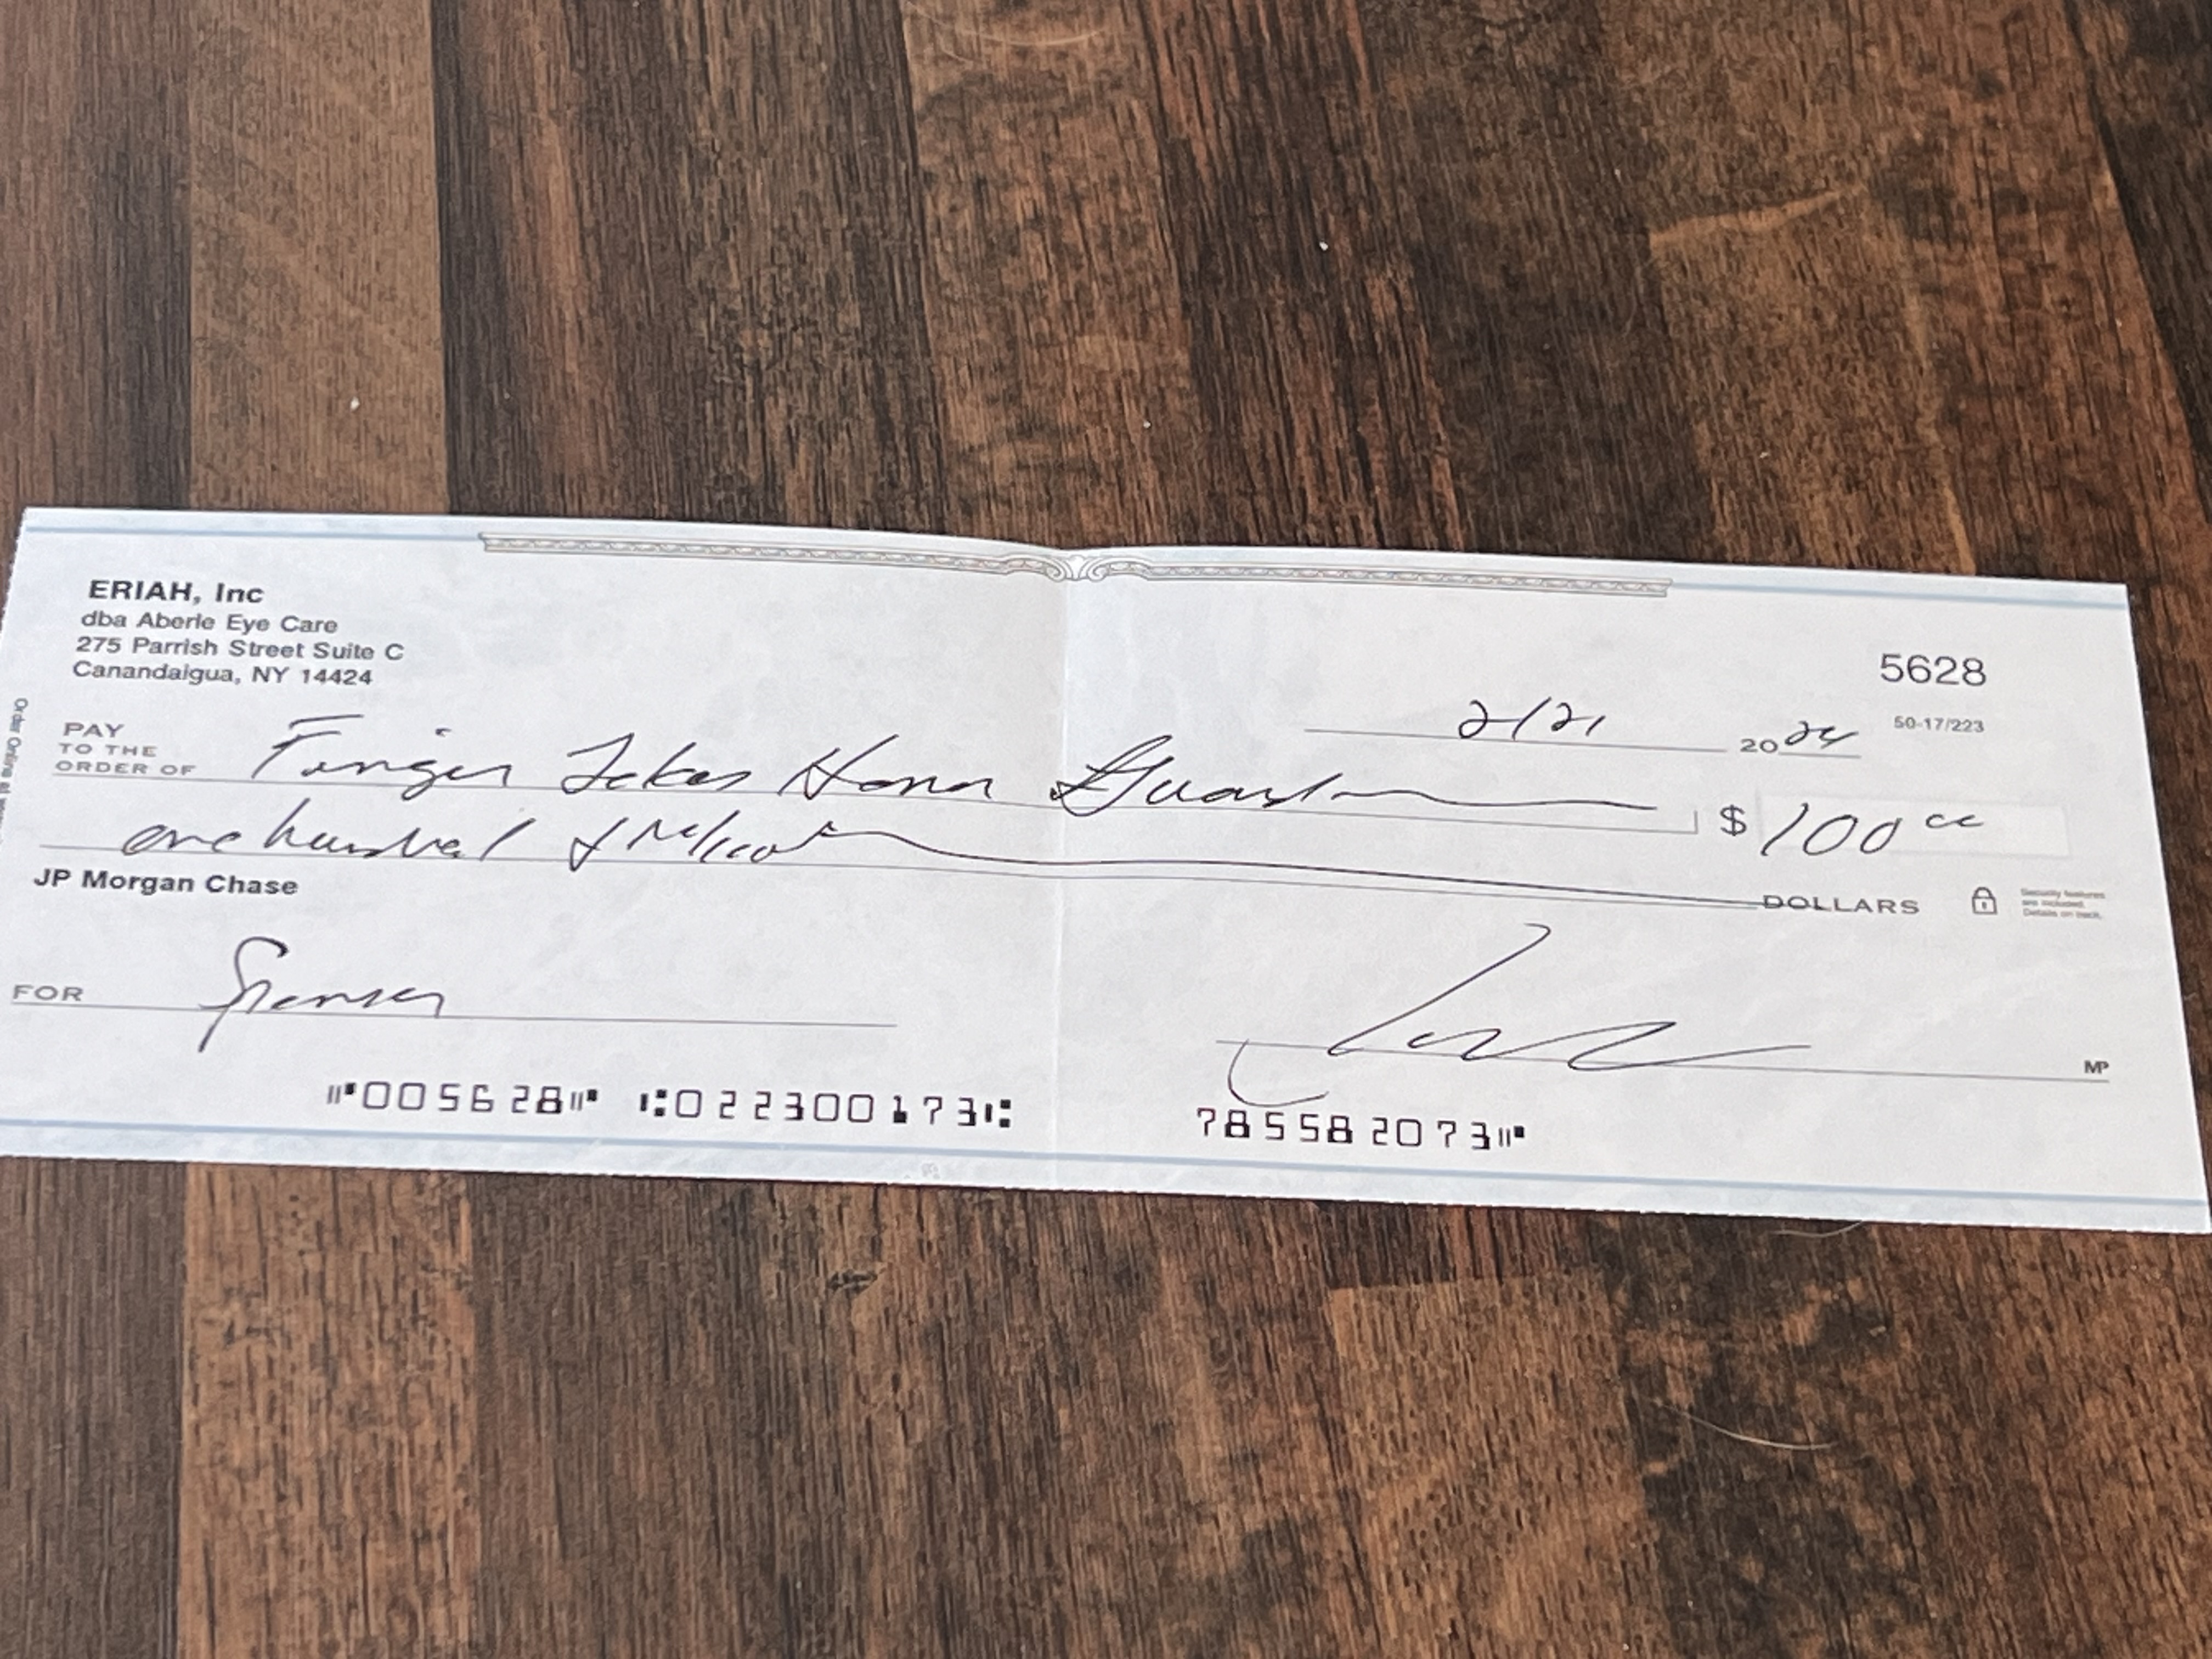 ERIAH, Inc
dba Aberle Eye Care
275 Parrish Street Suite C
Canandaigua, NY 14424
5628
50-17/223
2/21 2024
PAY TO THE ORDER OF Finger Lakes Honor Guard
$ 100 00
one hundred & no/100 DOLLARS
Security features are included. Details on back.
JP Morgan Chase
FOR Sponsor
MP
005628 022300173 785582073